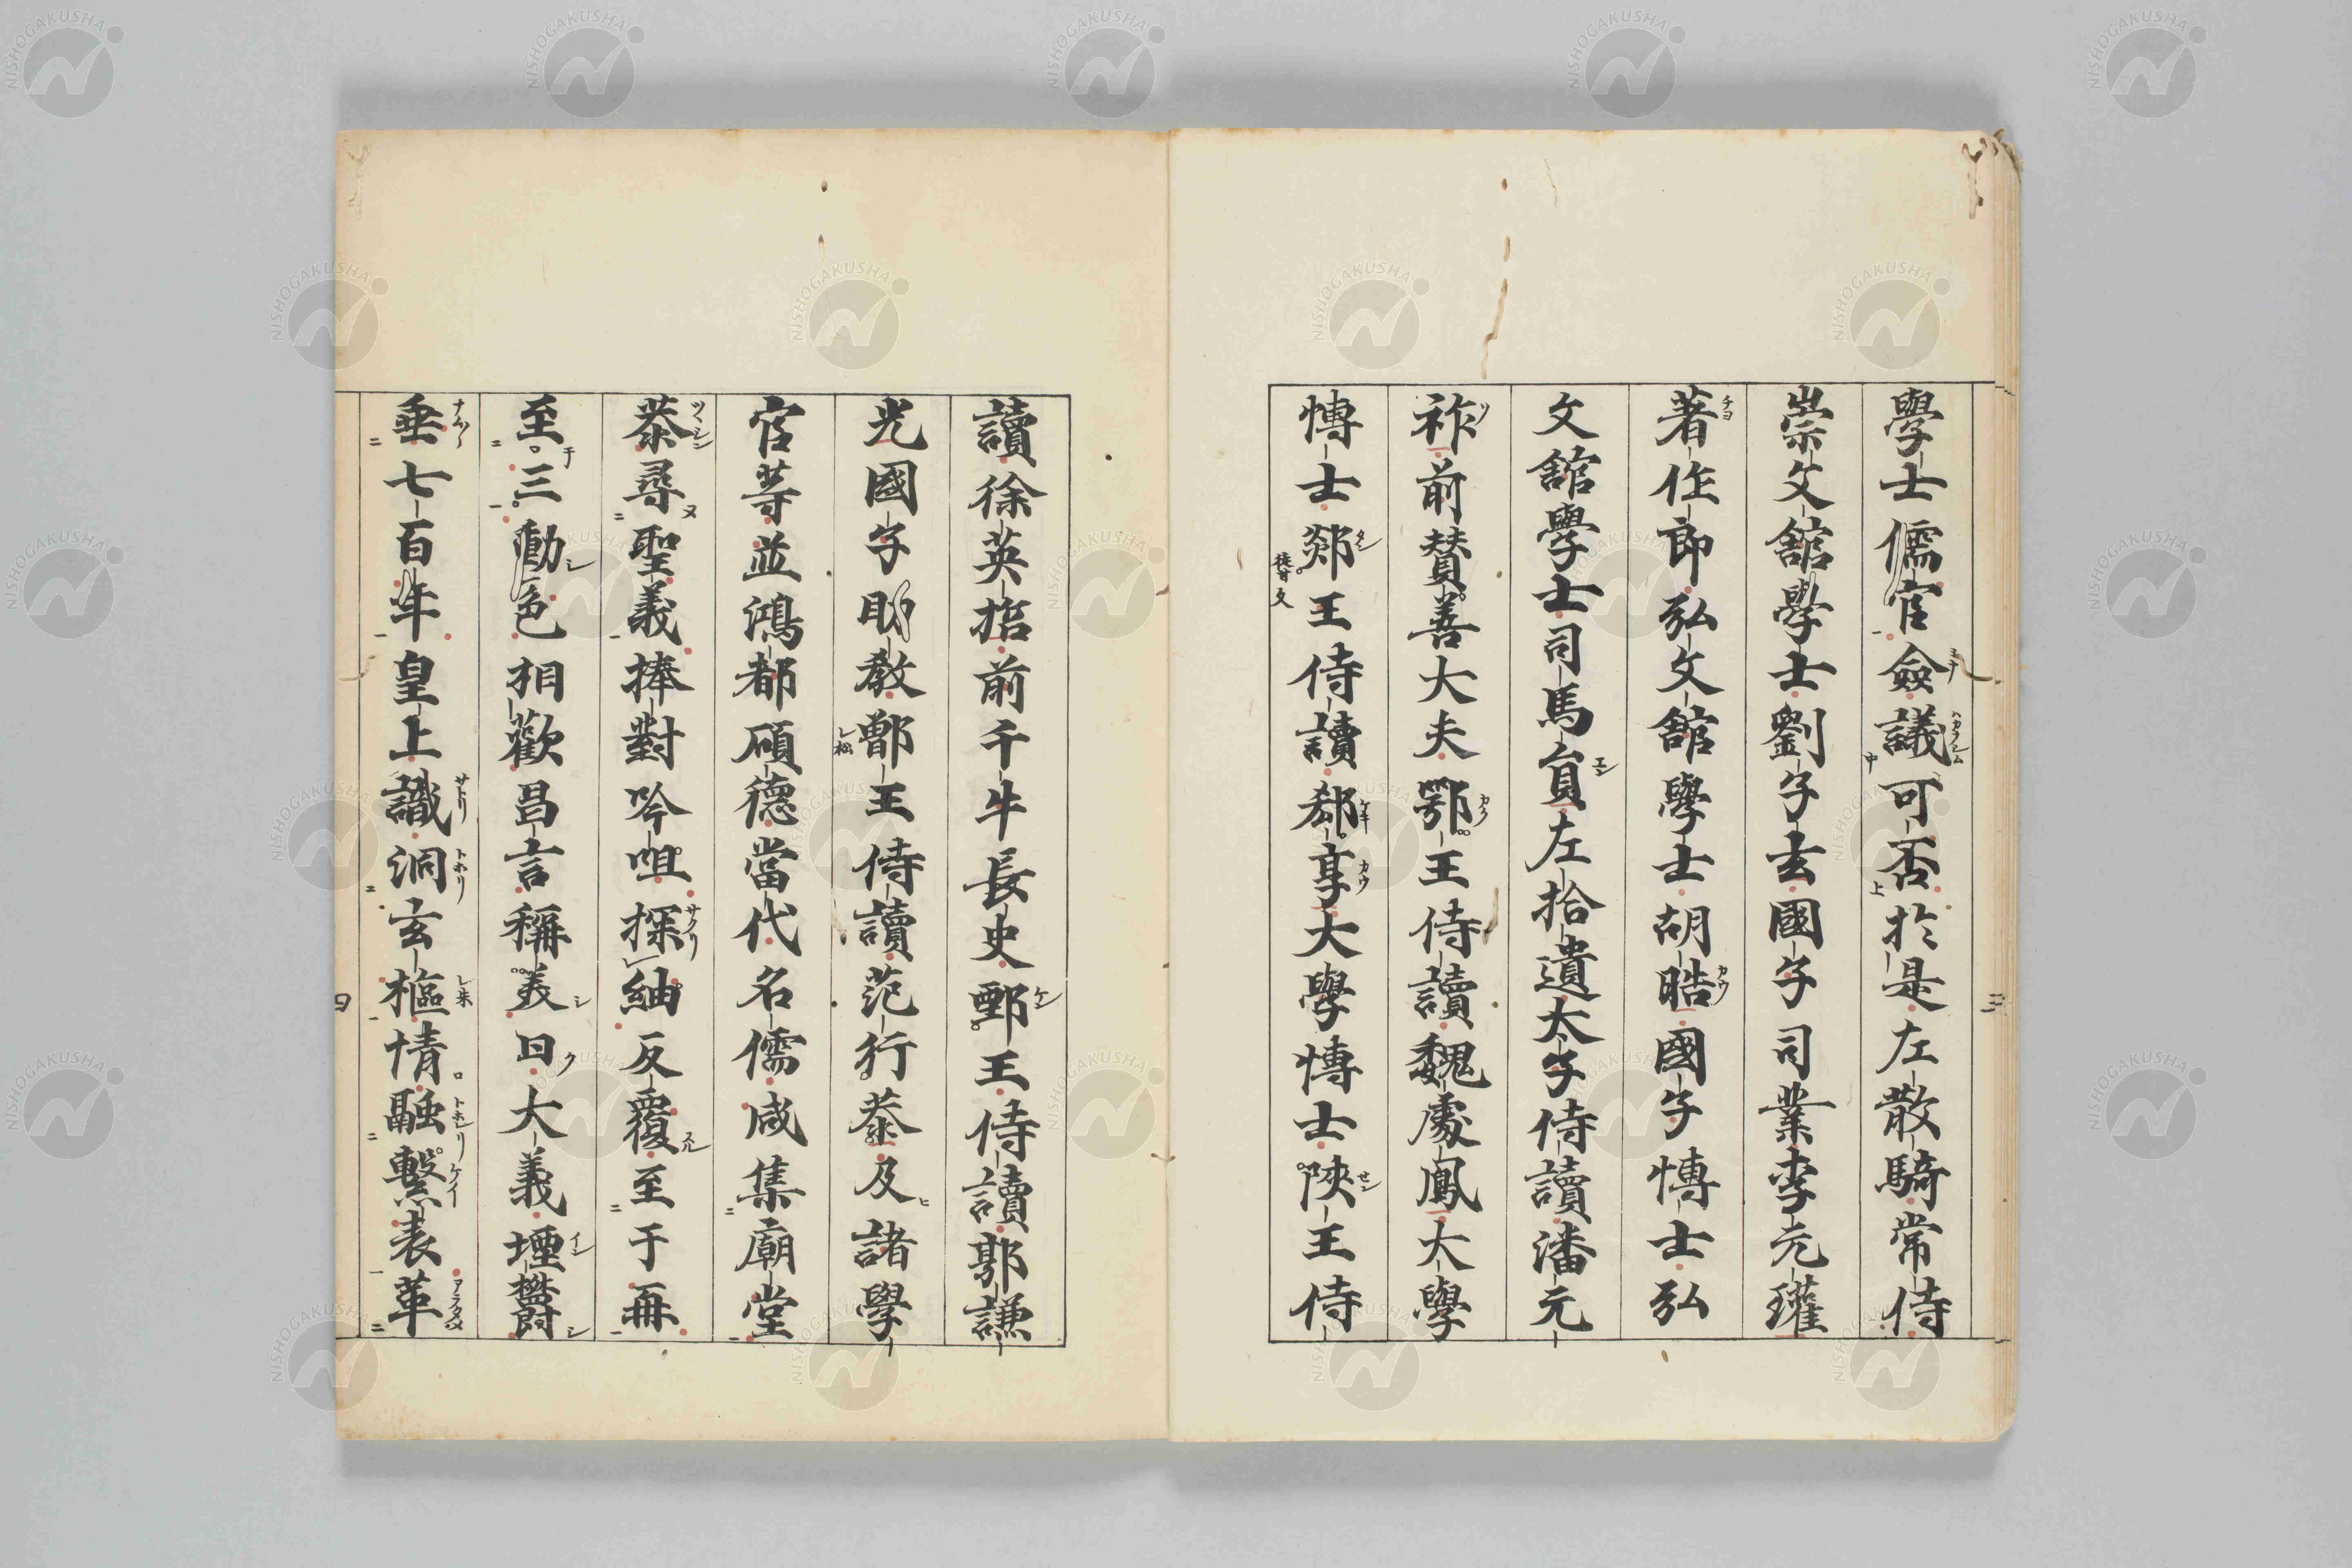 學士儒官僉議可否於是左散騎常侍
崇文舘學士劉子玄國子司業李元瓘
著作郎弘文舘學士胡晧國子博士弘
文舘學士司馬貟左拾遺太子侍讀潘元
祚前賛善大夫鄂王侍讀魏處鳳大學
博士郯王侍讀郄享大學博士陝王侍
讀徐英哲前千牛長史鄄王侍讀郭謙
光國子助教鄫王侍讀范行恭及諸學
官等並鴻都碩德當代名儒咸集廟堂
恭尋聖義捧對吟咀探紬反覆至于再
至三動色相歡昌言稱義曰大義堙欝
垂七百年皇上識洞玄樞情融繫表革